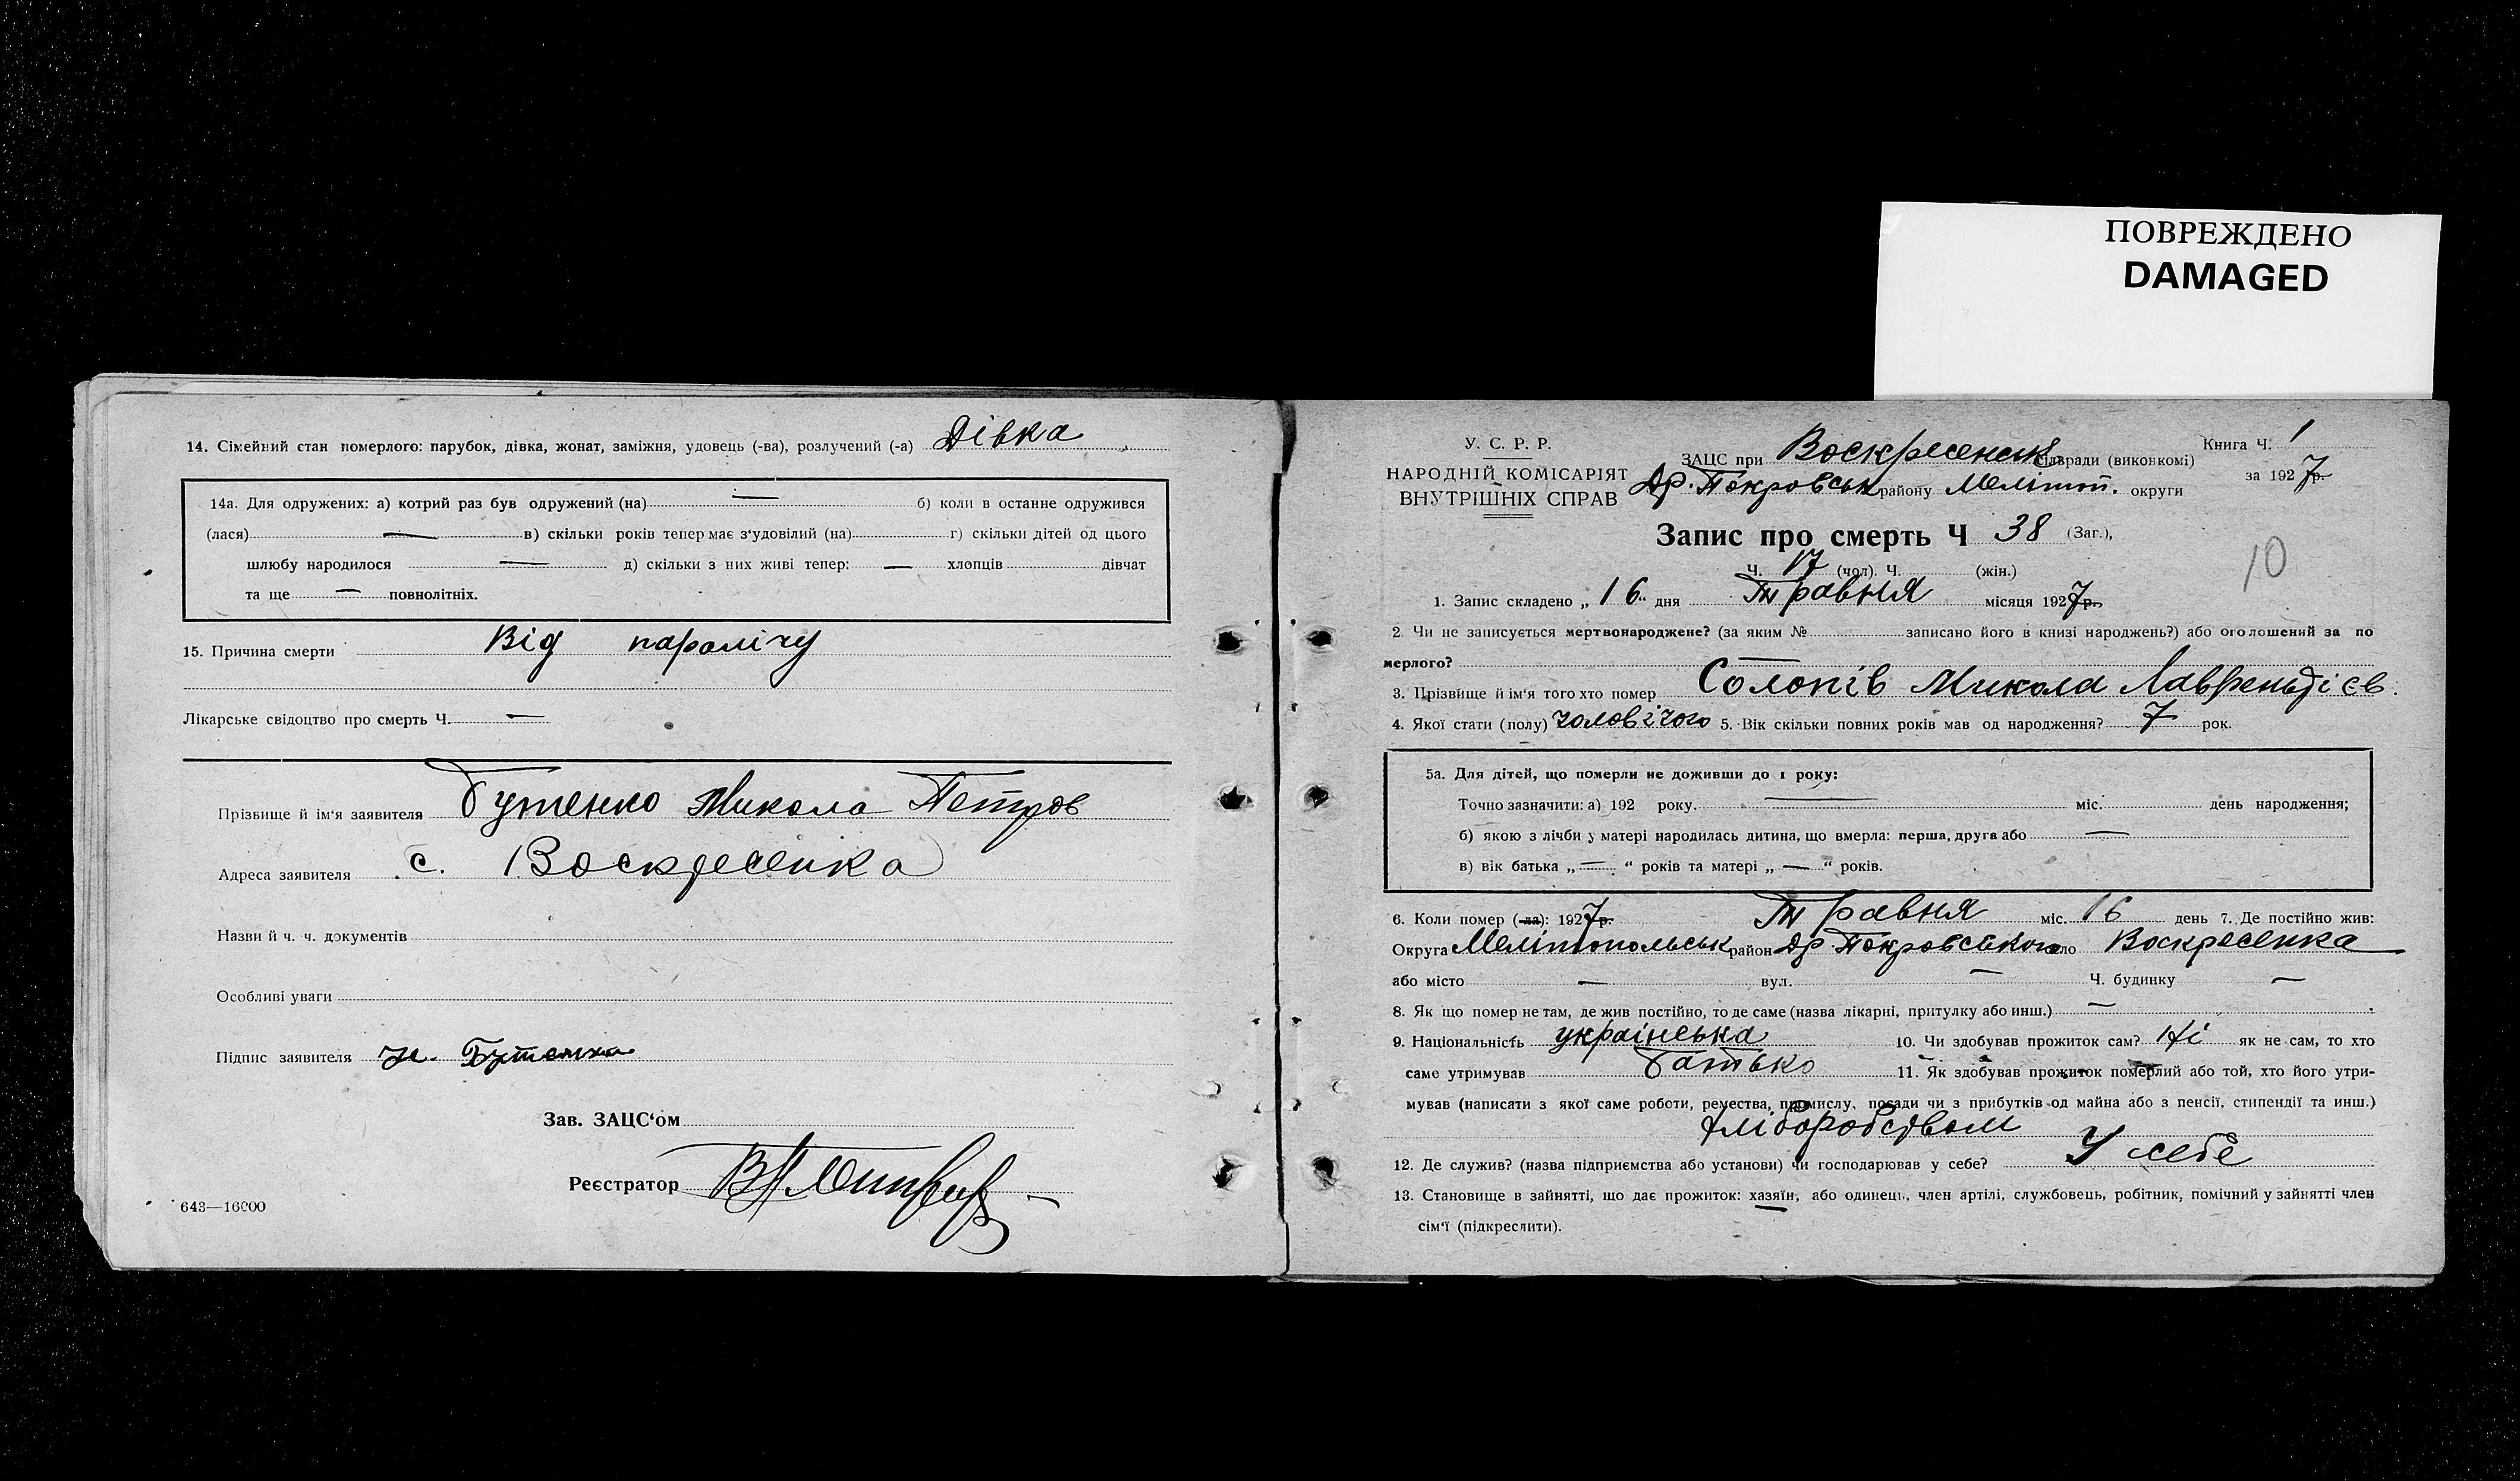 ПОВРЕЖДЕНО
DAMAGED
14. Сімейний стан померлого: парубок, дівка, жонат, заміжня, удовець (-ва), розлучений (-а) Дівка
14а. Для одружених: а) котрий раз був одружений (на) — б) коли в останне одружився
(лася) — в) скільки років тепер має з'удовілий (на) г) скільки дітей од цього
шлюбу народилося — д) скільки з них живі тепер: — хлопців дівчат
та ще — повнолітніх.
15. Причина смерти Від паралічу
Лікарське свідоцтво про смерть Ч. —
Прізвище й ім'я заявителя Бутенко Микола Петров
Адреса заявителя с. Воскресенка
Назви й ч. ч. документів
Особливі уваги
Підпис заявителя Н. Бутенко
Зав. ЗАЦС'ом
Реєстратор
643—16000
У. С. Р. Р.
НАРОДНІЙ КОМІСАРІЯТ
ВНУТРІШНІХ СПРАВ
ЗАЦС при Воскресенск сільвради (виконкомі)
Др. Покровськ району Меліт оп. округи
Книга Ч. 1
за 1927 р.
Запис про смерть Ч 38 (Заг.),
Ч. 17 (чол). Ч. (жін.)
10
1. Запис складено „16“ дня Травня місяця 1927 р.
2. Чи не записується мертвонароджене? (за яким № записано його в книзі народжень?) або оголошений за по
мерлого? —
3. Прізвище й ім'я того хто помер Солопів Микола Лаврентієв.
4. Якої стати (полу) чоловічого 5. Вік скільки повних років мав од народження? 7 рок.
5а. Для дітей, що померли не доживши до 1 року:
Точно зазначити: а) 192 року. — міс. день народження;
б) якою з лічби у матері народилась дитина, що вмерла: перша, друга або —
в) вік батька „—“ років та матері „—“ років.
6. Коли помер (ла): 1927 р. Травня міс. 16 день 7. Де постійно жив:
Округа Мелітопольськ район Др. Покровського село Воскресенка
або місто — вул. — Ч. будинку —
8. Як що помер не там, де жив постійно, то де саме (назва лікарні, притулку або инш.) —
9. Національність українська 10. Чи здобував прожиток сам? Ні як не сам, то хто
саме утримував батько 11. Як здобував прожиток померлий або той, хто його утри-
мував (написати з якої саме роботи, ремества, промислу, посади чи з прибутків од майна або з пенсії, стипендії та инш.)
хліборобством
12. Де служив? (назва підприємства або установи) чи господарював у себе? У себе
13. Становище в зайнятті, що дає прожиток: хазяїн, або одинець, член артілі, службовець, робітник, помічний у зайнятті член
сім'ї (підкреслити).